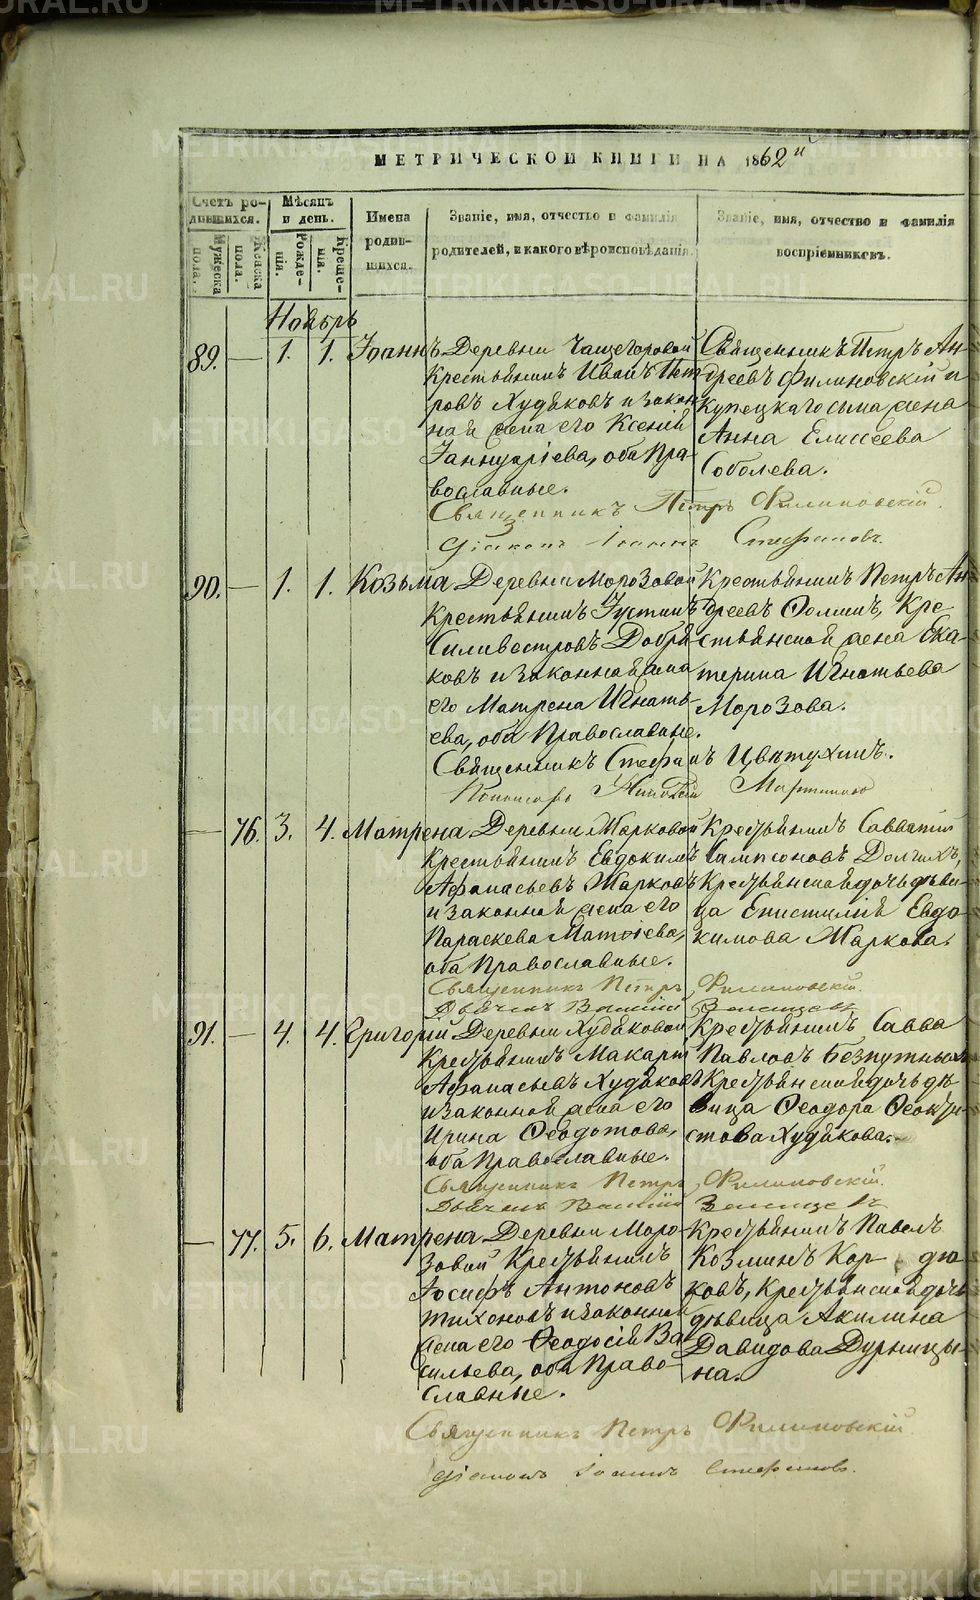 METRIKI.GASO-URAL.RU
МЕТРИЧЕСКОЙ КНИГИ НА 1862й
Счетъ родившихся.
Мѣсяцъ и день.
Имена родившихся.
Званіе, имя, отчество и фамилія родителей, и какого вѣроисповѣданія.
Званіе, имя, отчество и фамилія воспріемниковъ.
Мужеска пола.
Женска пола.
Рожденія.
Крещенія.
Ноябрь
89. — 1. 1. Іоаннъ
Деревни Чащегоровой
Крестьянинъ Иванъ Пет
ровъ Худяковъ и закон
ная жена его Ксенія
Іаннуаріева, оба Пра-
вославные.
Священникъ Петръ Ан
дреевъ Филиновскій и
Купецкаго сына жена
Анна Елисеева
Соболева.
Священникъ Петръ Филиновскій.
Діаконъ Іоаннъ Стефановъ.
90. — 1. 1. Козьма
Деревни Морозовой
Крестьянинъ Іустинъ
Силивестровъ Добря
ковъ и законная жена
его Матрена Игнать-
ева, оба Православные.
Крестьянинъ Петръ Ан-
дреевъ Ѳоминъ, Кре
стьянская жена Ека-
терина Игнатьева
Морозова.
Священникъ Стефанъ Цвѣтухинъ.
Пономарь
— 76. 3. 4. Матрена
Деревни Жарковой
Крестьянинъ Евдокимъ
Афанасьевъ Жарковъ
и законная жена его
Параскева Матѳіева,
оба Православные.
Крестьянинъ Савватій
Сампсоновъ Долгихъ,
Крестьянская дочь дѣви
ца Епистимія Евдо-
кимова Жаркова.
Священникъ Петръ Филиновскій.
Дьячекъ Василій
91. — 4. 4. Григорій
Деревни Худяковой
Крестьянинъ Макарій
Афанасьевъ Худяковъ
и законная жена его
Ирина Ѳеодотова,
оба Православные.
Крестьянинъ Савва
Павловъ Безпутныхъ
Крестьянская дочь дѣ
вица Ѳеодора Ѳеокти-
стова Худякова.
Священникъ Петръ Филиновскій.
Дьячекъ Василій
— 77. 5. 6. Матрена
Деревни Моро-
зовой Крестьянинъ
Іосифъ Антоновъ
Тихоновъ и законная
жена его Ѳеодосія Ва
сильева, оба Право-
славные.
Крестьянинъ Павелъ
Козминъ Кор дю
ковъ, Крестьянская дочь
дѣвица Акилина
Давидова Дурницы-
на.
Священникъ Петръ Филиновскій
Діаконъ Іоаннъ Стефановъ.